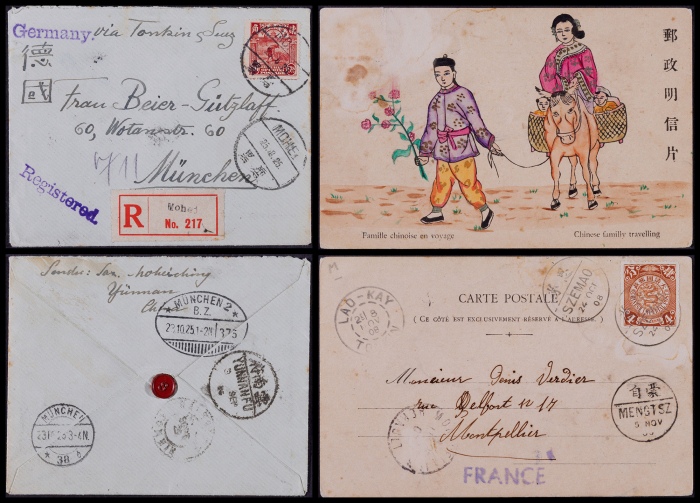 Germany. via Tonkin & Suez
德
国
Frau Beier-Gützlaff
60, Wotanstr. 60
München
Registered.
R
Mohei
No. 217
MOHEI
郵政明信片
Famille chinoise en voyage
Chinese familly travelling
Sender: Sax. Moheitsching
Yünnan
China
MÜNCHEN 2
B.Z.
23.10.25.1-2N
375
YUNNANFU
MÜNCHEN
38
LAO-KAY
SZEMAO
24 OCT
08
4
CARTE POSTALE
(CE CÔTÉ EST EXCLUSIVEMENT RÉSERVÉ A L'ADRESSE.)
Monsieur Denis Verdier
rue Belfort n° 17
Montpellier
自蒙
MENGTSZ
5 NOV
FRANCE